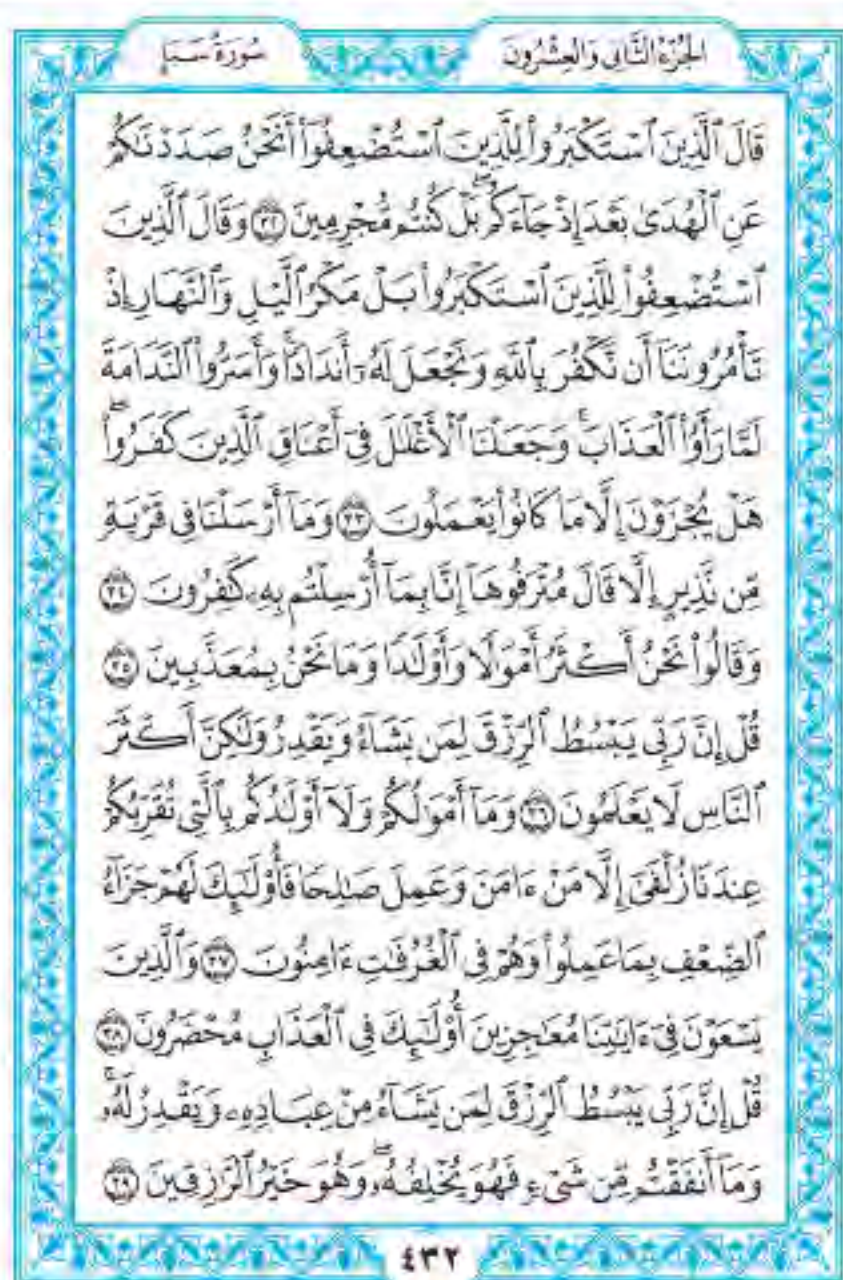 الجُزْءُ الثَّانِي وَالعِشْرُونَ
سُورَةُ سَبَإٍ
قَالَ ٱلَّذِينَ ٱسْتَكْبَرُوا۟ لِلَّذِينَ ٱسْتُضْعِفُوٓا۟ أَنَحْنُ صَدَدْنَٰكُمْ
عَنِ ٱلْهُدَىٰ بَعْدَ إِذْ جَآءَكُمۖ بَلْ كُنتُم مُّجْرِمِينَ ﴿٣٢﴾ وَقَالَ ٱلَّذِينَ
ٱسْتُضْعِفُوا۟ لِلَّذِينَ ٱسْتَكْبَرُوا۟ بَلْ مَكْرُ ٱلَّيْلِ وَٱلنَّهَارِ إِذْ
تَأْمُرُونَنَآ أَن نَّكْفُرَ بِٱللَّهِ وَنَجْعَلَ لَهُۥٓ أَندَادًاۚ وَأَسَرُّوا۟ ٱلنَّدَامَةَ
لَمَّا رَأَوُا۟ ٱلْعَذَابَۚ وَجَعَلْنَا ٱلْأَغْلَٰلَ فِىٓ أَعْنَاقِ ٱلَّذِينَ كَفَرُوا۟ۖ
هَلْ يُجْزَوْنَ إِلَّا مَا كَانُوا۟ يَعْمَلُونَ ﴿٣٣﴾ وَمَآ أَرْسَلْنَا فِى قَرْيَةٍ
مِّن نَّذِيرٍ إِلَّا قَالَ مُتْرَفُوهَآ إِنَّا بِمَآ أُرْسِلْتُم بِهِۦ كَٰفِرُونَ ﴿٣٤﴾
وَقَالُوا۟ نَحْنُ أَكْثَرُ أَمْوَٰلًا وَأَوْلَٰدًا وَمَا نَحْنُ بِمُعَذَّبِينَ ﴿٣٥﴾
قُلْ إِنَّ رَبِّى يَبْسُطُ ٱلرِّزْقَ لِمَن يَشَآءُ وَيَقْدِرُ وَلَٰكِنَّ أَكْثَرَ
ٱلنَّاسِ لَا يَعْلَمُونَ ﴿٣٦﴾ وَمَآ أَمْوَٰلُكُمْ وَلَآ أَوْلَٰدُكُم بِٱلَّتِى تُقَرِّبُكُمْ
عِندَنَا زُلْفَىٰٓ إِلَّا مَنْ ءَامَنَ وَعَمِلَ صَٰلِحًا فَأُو۟لَٰٓئِكَ لَهُمْ جَزَآءُ
ٱلضِّعْفِ بِمَا عَمِلُوا۟ وَهُمْ فِى ٱلْغُرُفَٰتِ ءَامِنُونَ ﴿٣٧﴾ وَٱلَّذِينَ
يَسْعَوْنَ فِىٓ ءَايَٰتِنَا مُعَٰجِزِينَ أُو۟لَٰٓئِكَ فِى ٱلْعَذَابِ مُحْضَرُونَ ﴿٣٨﴾
قُلْ إِنَّ رَبِّى يَبْسُطُ ٱلرِّزْقَ لِمَن يَشَآءُ مِنْ عِبَادِهِۦ وَيَقْدِرُ لَهُۥۚ
وَمَآ أَنفَقْتُم مِّن شَىْءٍ فَهُوَ يُخْلِفُهُۥۖ وَهُوَ خَيْرُ ٱلرَّٰزِقِينَ ﴿٣٩﴾
٤٣٢